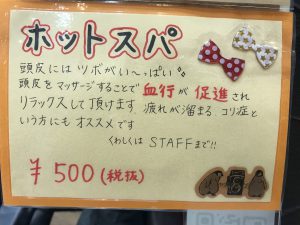 ホットスパ
頭皮にはツボがい〜っぱい
頭皮をマッサージすることで血行が促進され
リラックスして頂けます 疲れが溜まる、コリ症と
いう方にもオススメです
くわしくは STAFFまで!!
¥500(税抜)